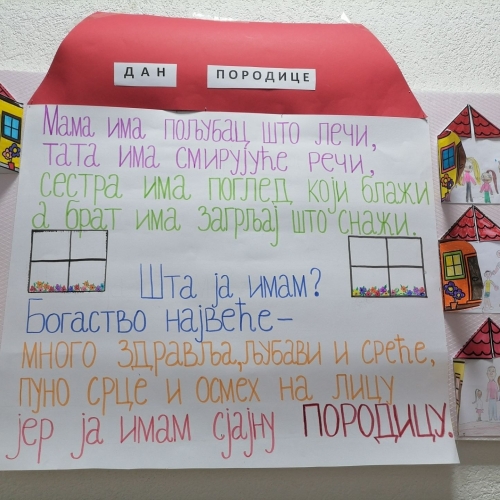 ДАН ПОРОДИЦЕ
Мама има пољубац што лечи,
тата има смирујуће речи,
сестра има поглед који блажи
а брат има загрљај што снажи.
Шта ја имам?
Богаство највеће-
много здравља,љубави и среће,
пуно срце и осмех на лицу
јер ја имам сјајну ПОРОДИЦУ.